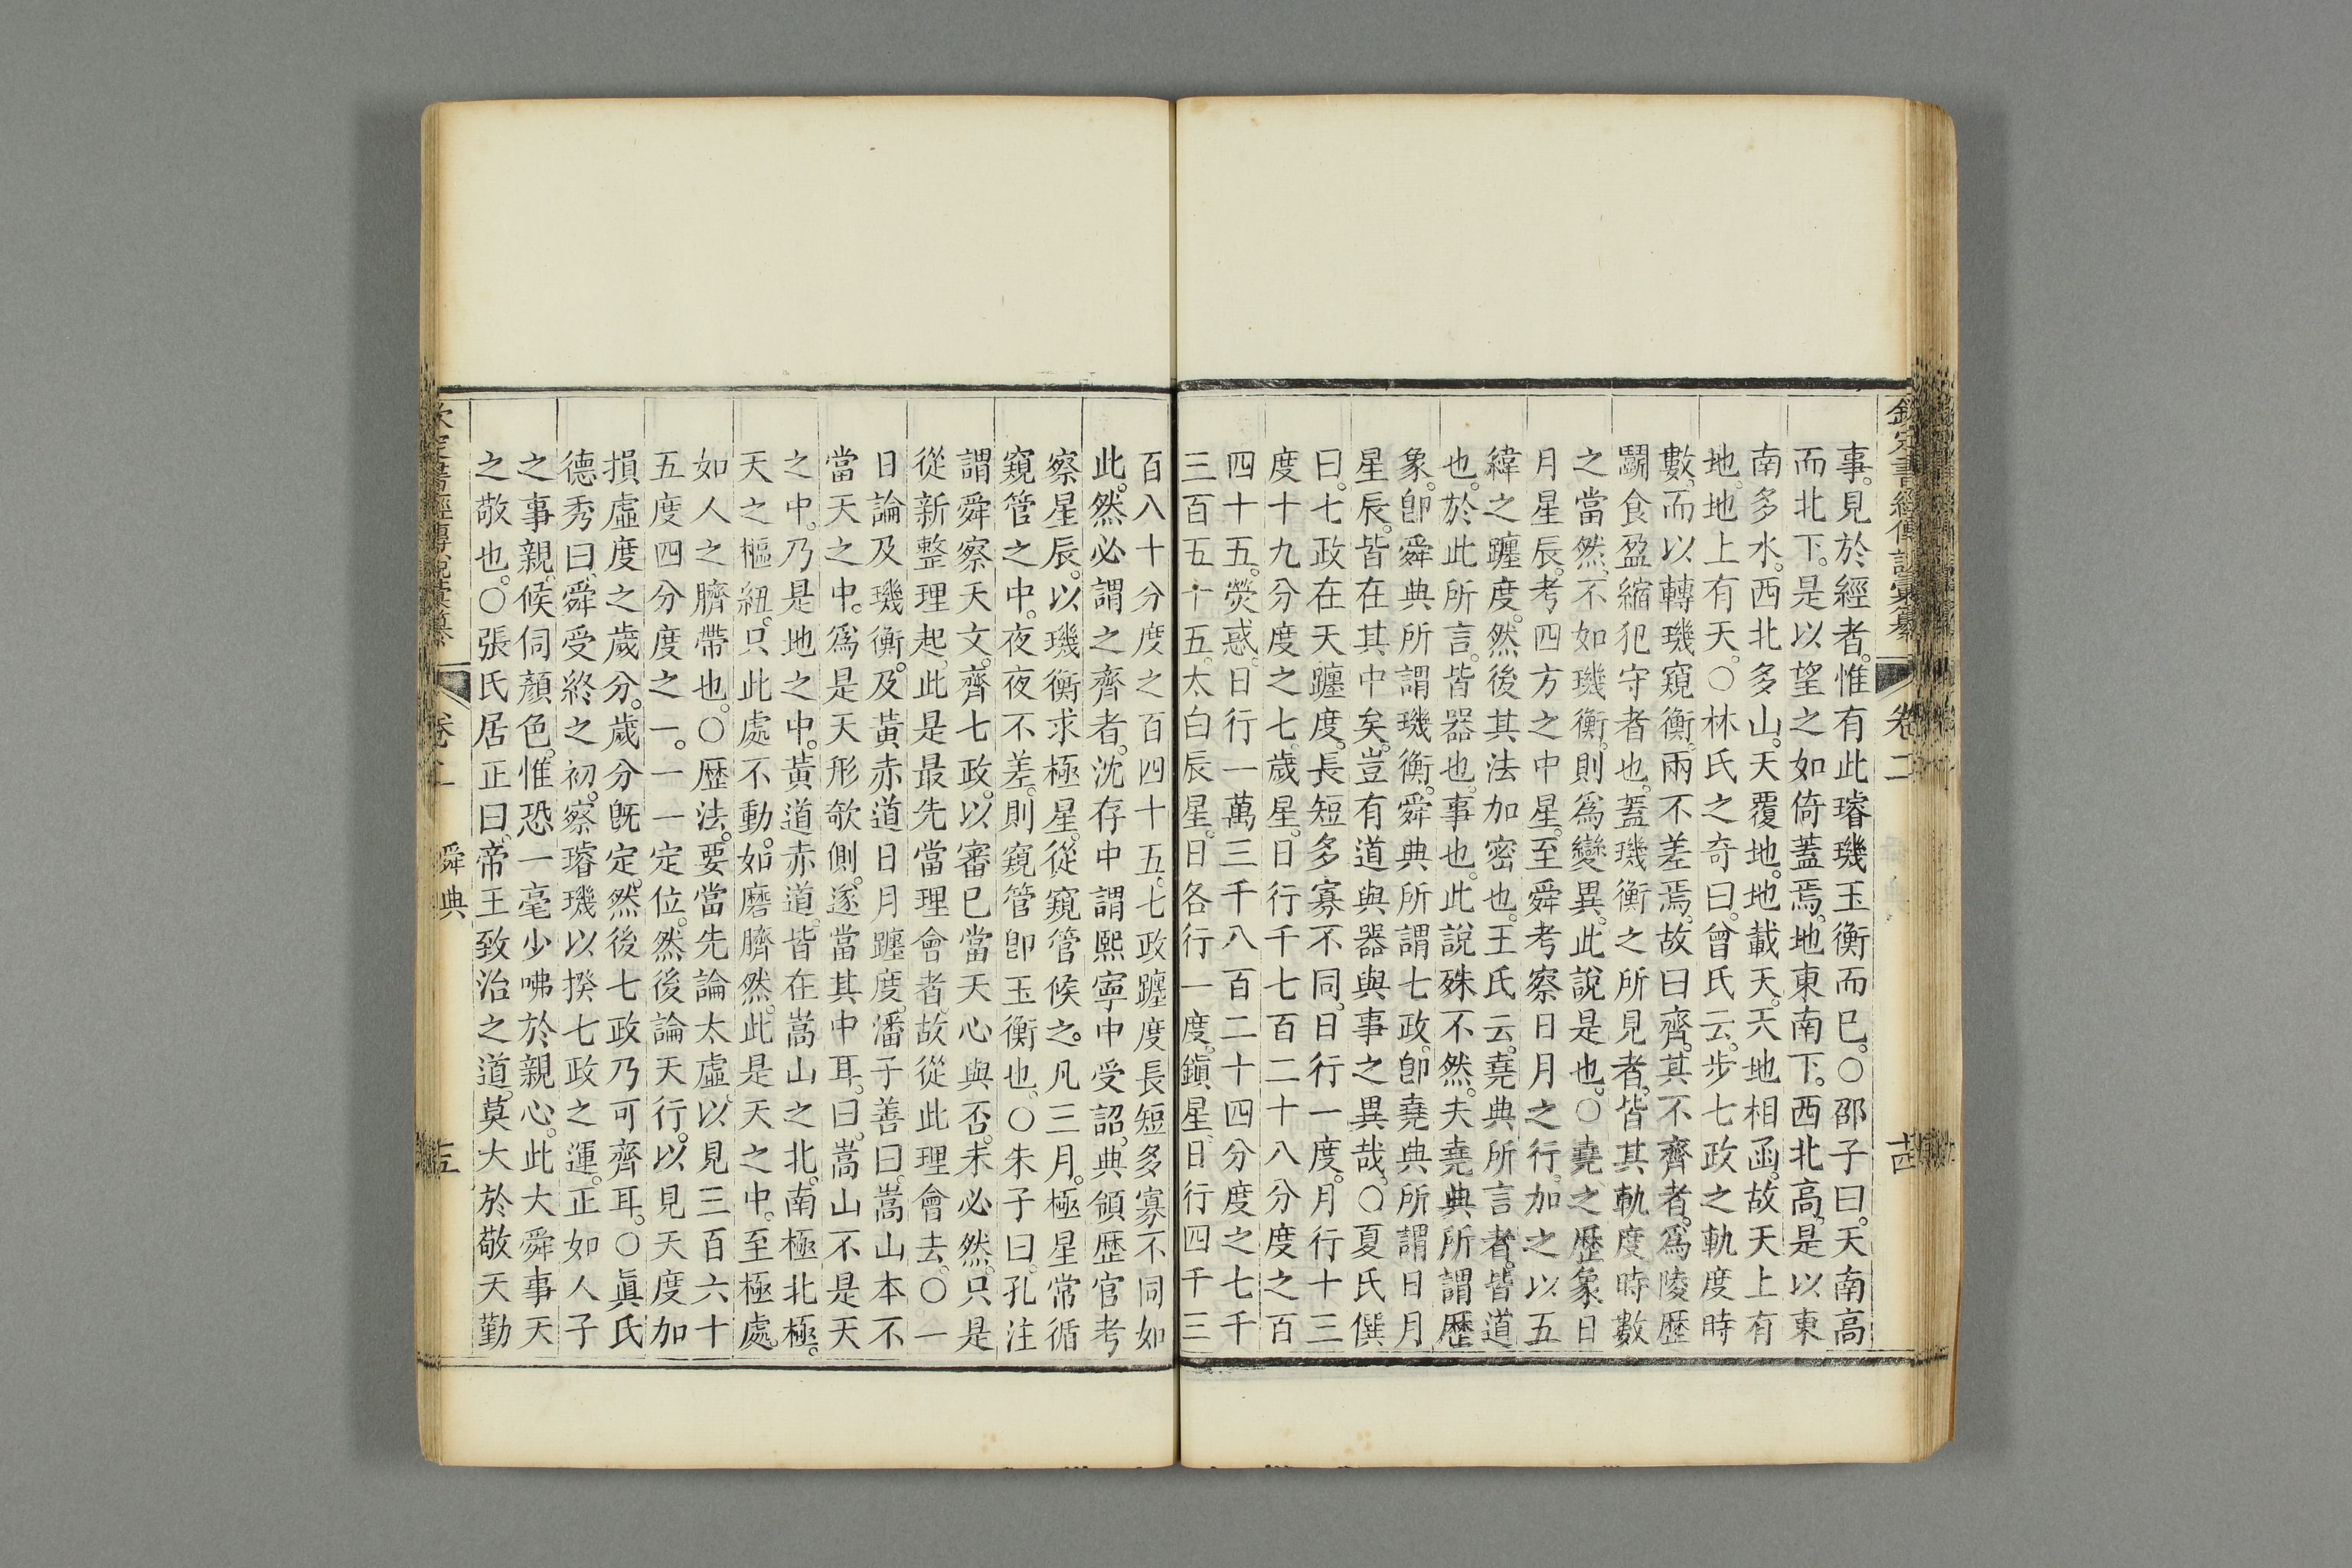 欽定書經傳說彙纂 卷二 十四
事。見於經者。惟有此璿璣玉衡而已。○邵子曰。天南高
而北下。是以望之如倚蓋焉。地東南下。西北高。是以東
南多水。西北多山。天覆地。地載天。天地相函。故天上有
地。地上有天。○林氏之奇曰。曾氏云。步七政之軌度時
數。而以轉璣窺衡。兩不差焉。故曰齊。其不齊者。爲陵歷
鬭食盈縮犯守者也。蓋璣衡之所見者。皆其軌度時數
之當然。不如璣衡。則爲變異。此說是也。○堯之歷象日
月星辰。考四方之中星。至舜考察日月之行。加之以五
緯之躔度。然後其法加密也。王氏云。堯典所言者。皆道
也。於此所言。皆器也。事也。此說殊不然。夫堯典所謂歷
象。卽舜典所謂璣衡。舜典所謂七政。卽堯典所謂日月
星辰。皆在其中矣。豈有道與器與事之異哉。○夏氏僎
曰。七政在天躔度。長短多寡不同。日行一度。月行十三
度十九分度之七。歲星。日行千七百二十八分度之百
四十五。熒惑。日行一萬三千八百二十四分度之七千
三百五十五。太白辰星。日各行一度。鎭星。日行四千三
百八十分度之百四十五。七政躔度長短多寡不同如
此。然必謂之齊者。沈存中謂熙寧中受詔。典領歷官考
察星辰。以璣衡求極星。從窺管候之。凡三月。極星常循
窺管之中。夜夜不差。則窺管卽玉衡也。○朱子曰。孔注
謂舜察天文。齊七政。以審已當天心與否。未必然。只是
從新整理起。此是最先當理會者。故從此理會去。○一
日論及璣衡。及黃赤道日月躔度。潘子善曰。嵩山本不
當天之中。爲是天形欹側。遂當其中耳。曰。嵩山不是天
之中。乃是地之中。黃道赤道。皆在嵩山之北。南極北極。
天之樞紐。只此處不動。如磨臍然。此是天之中。至極處。
如人之臍帶也。○歷法。要當先論太虛。以見三百六十
五度四分度之一。一一定位。然後論天行。以見天度加
損虛度之歲分。歲分旣定。然後七政乃可齊耳。○眞氏
德秀曰。舜受終之初。察璿璣以揆七政之運。正如人子
之事親。候伺顏色。惟恐一毫少咈於親心。此大舜事天
之敬也。○張氏居正曰。帝王致治之道。莫大於敬天勤
欽定書經傳說彙纂 卷二 舜典 十五